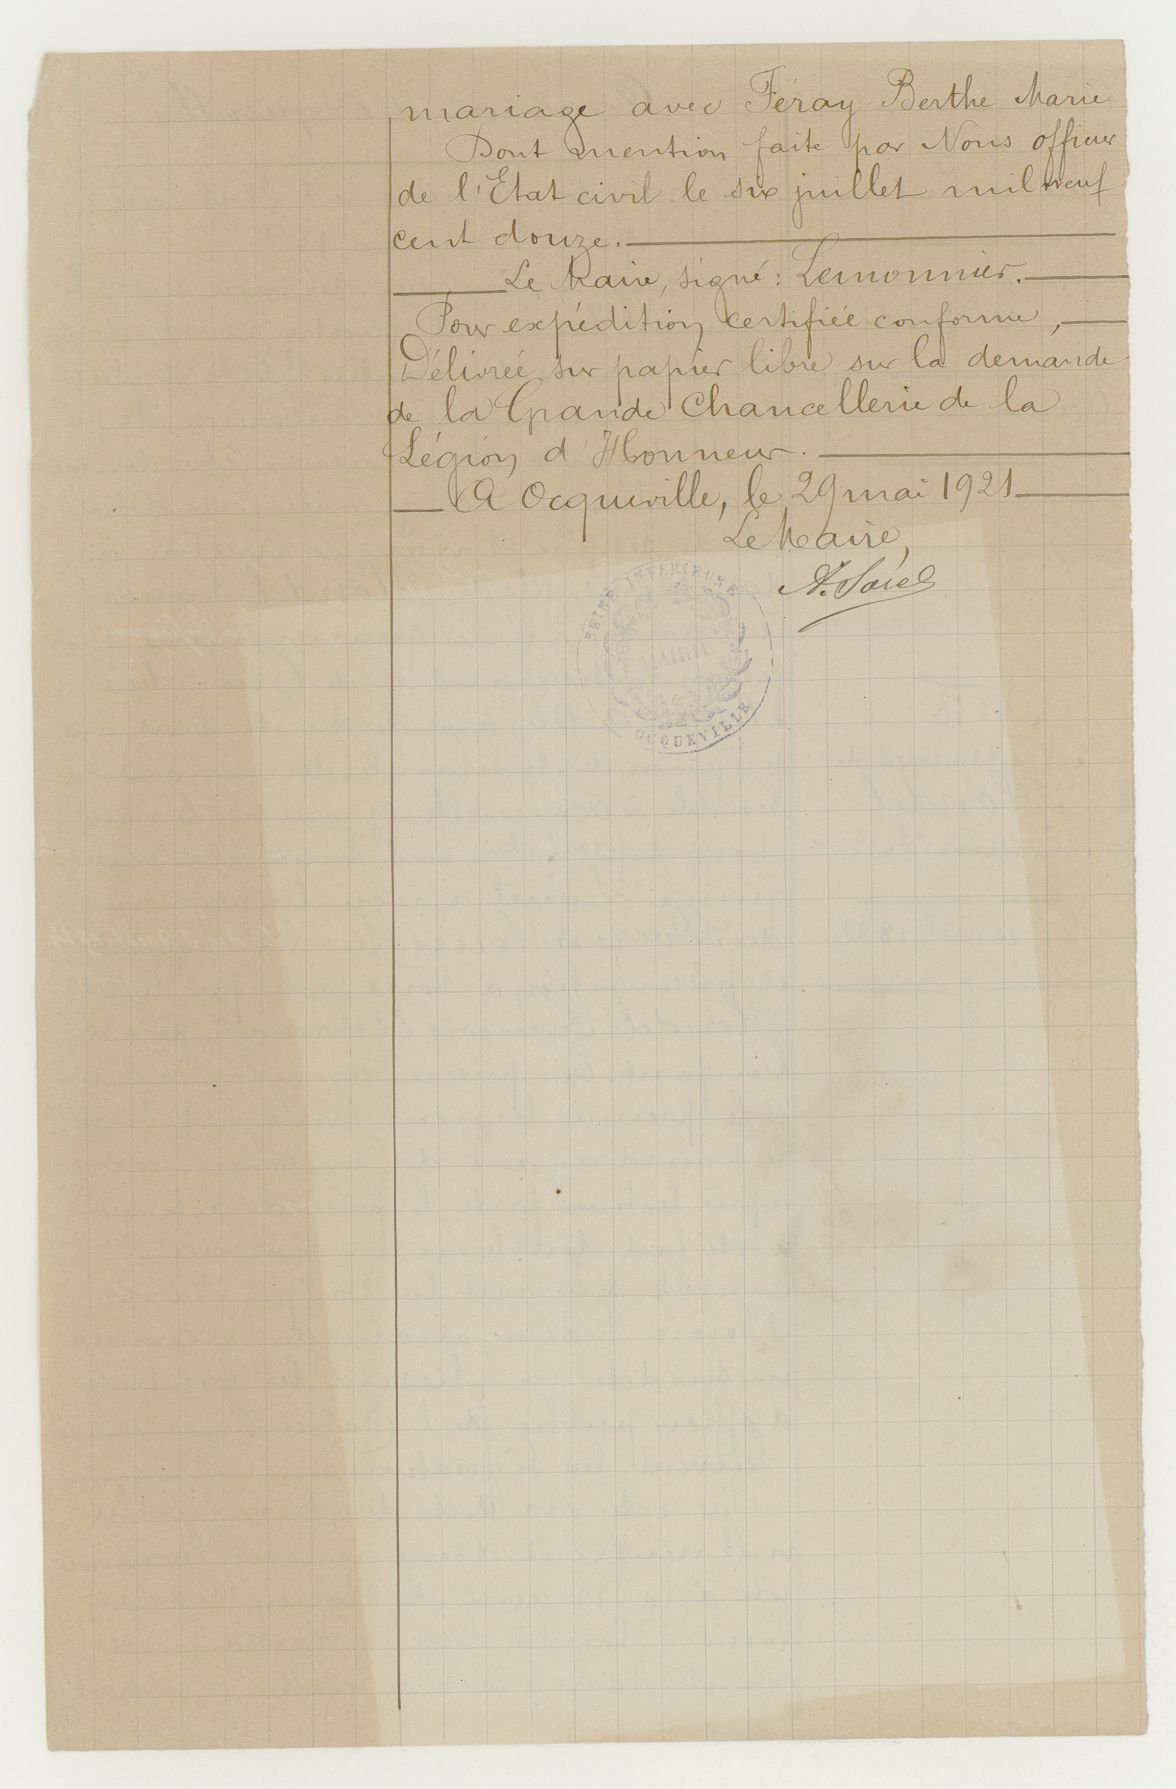 mariage avec Féray Berthe Marie
Dont mention faite par Nous officier
de l'Etat civil le six juillet mil neuf
cent douze.
Le Maire, signé : Lemonnier.
Pour expédition certifiée conforme,
Délivrée sur papier libre sur la demande
de la Grande Chancellerie de la
Légion d'Honneur.
A Ocqueville, le 29 mai 1921
Le Maire,
SEINE INFERIEURE
MAIRIE
OCQUEVILLE